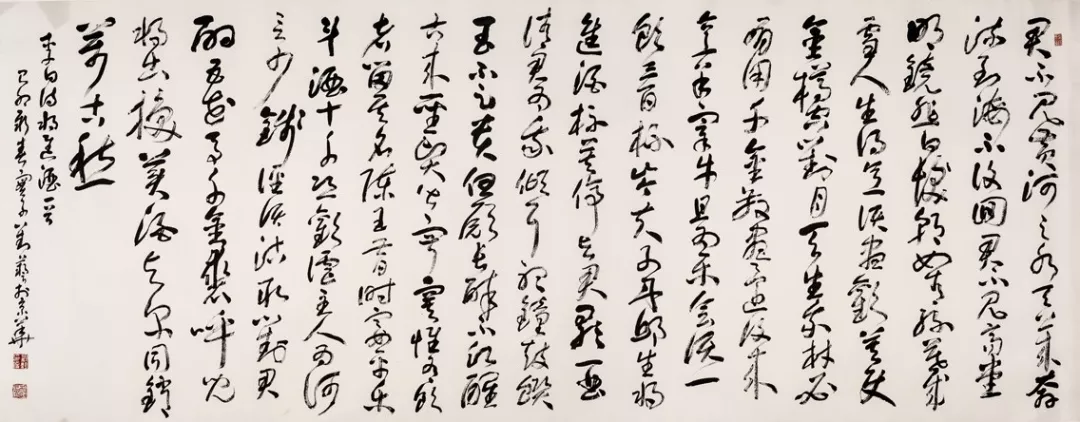 君不見黃河之水天上來奔
流到海不復回君不見高堂
明鏡悲白髮朝如青絲暮成
雪人生得意須盡歡莫使
金樽空對月天生我材必
有用千金散盡還復來
烹羊宰牛且為樂會須一
飲三百杯岑夫子丹邱生將
進酒杯莫停與君歌一曲
請君為我傾耳聽鐘鼓饌
玉不足貴但願長醉不願醒
古來聖賢皆寂寞惟有飲
者留其名陳王昔時宴平樂
斗酒十千恣歡謔主人為何
言少錢徑須沽取對君
酌五花馬千金裘呼兒
將出換美酒與爾同銷
萬古愁
李白詩將進酒一首
己卯新春於京華